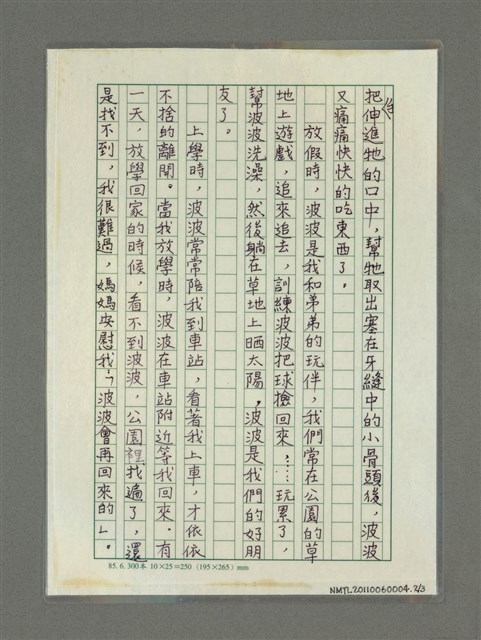 把伸進牠的口中，幫牠取出塞在牙縫中的小骨頭後，波波
又痛痛快快的吃東西了。
放假時，波波是我和弟弟的玩伴，我們常在公園的草
地上遊戲，追來追去，訓練波波把球撿回來……玩累了，
幫波波洗澡，然後躺在草地上晒太陽，波波是我們的好朋
友了。
上學時，波波常常陪我到車站，看著我上車，才依依
不捨的離開。當我放學時，波波在車站附近等我回來。有
一天，放學回家的時候，看不到波波，公園裡找遍了，還
是找不到，我很難過，媽媽安慰我：「波波會再回來的」。
85. 6. 300本 10×25＝250 (195×265) mm
NMTL20110060004.2/3